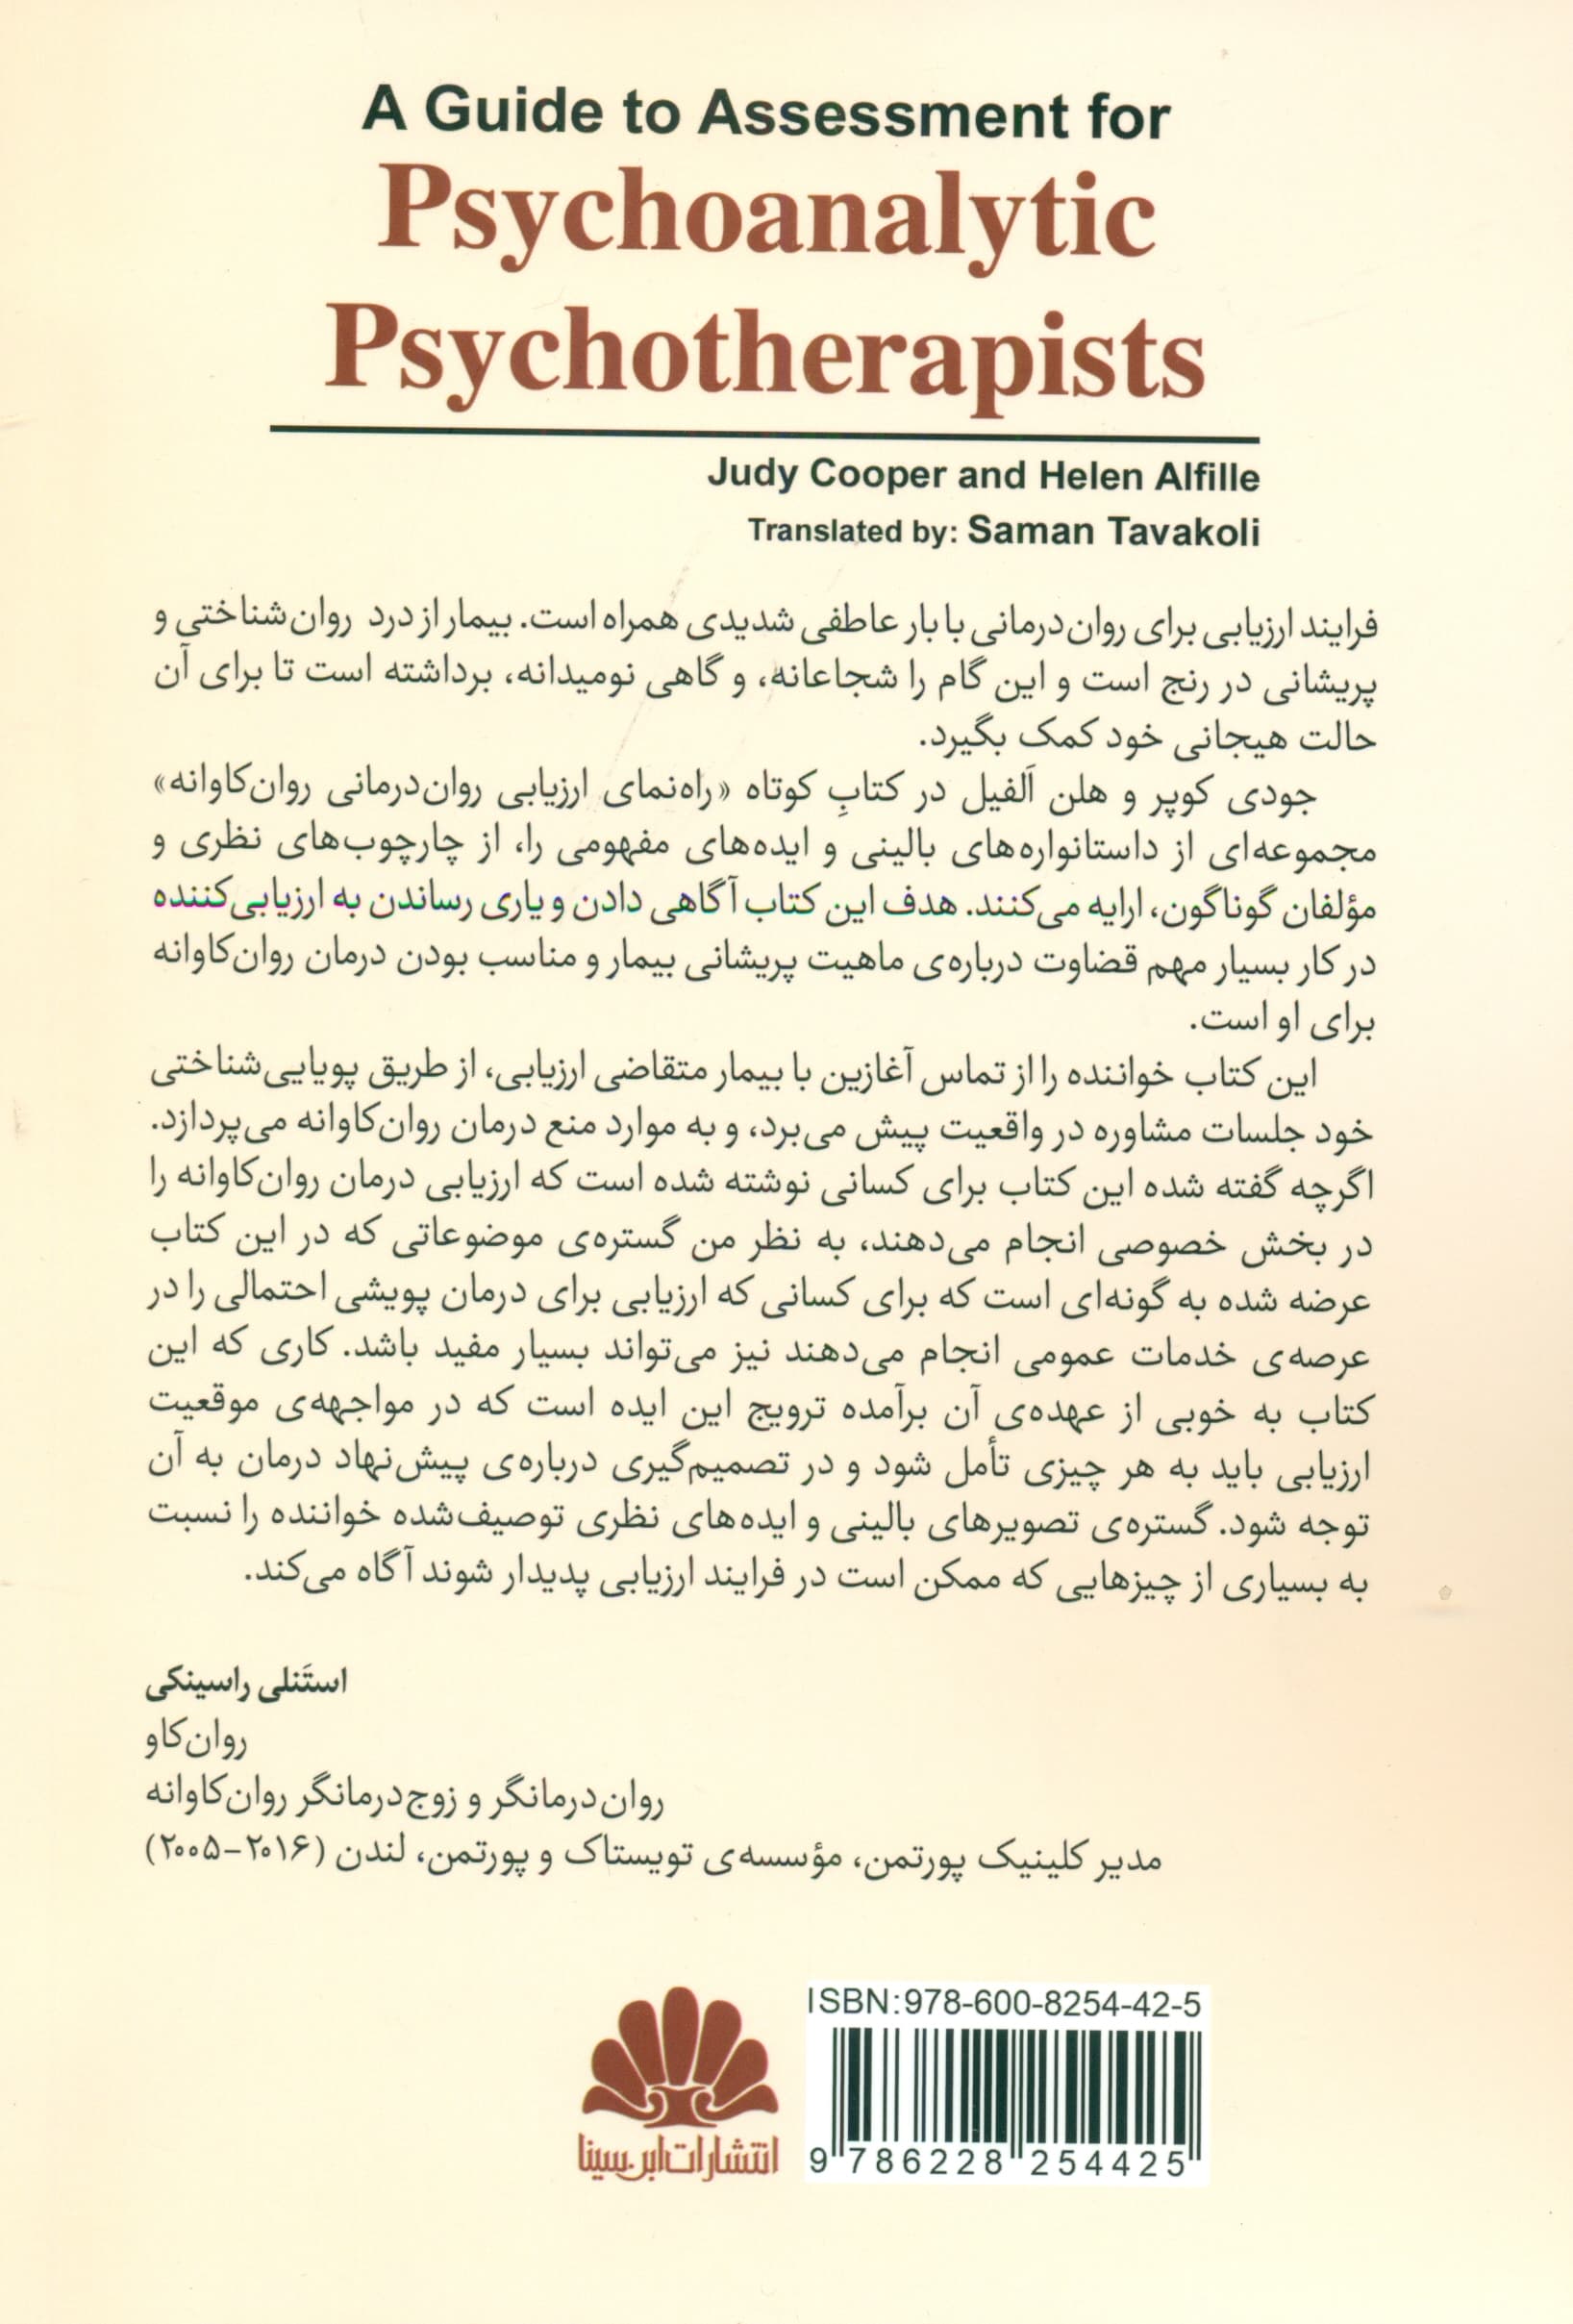 A Guide to Assessment for
Psychoanalytic
Psychotherapists
Judy Cooper and Helen Alfille
Translated by: Saman Tavakoli
فرایند ارزیابی برای روان‌درمانی با بار عاطفی شدیدی همراه است. بیمار از درد روان‌شناختی و
پریشانی در رنج است و این گام را شجاعانه، و گاهی نومیدانه، برداشته است تا برای آن
حالت هیجانی خود کمک بگیرد.
جودی کوپر و هلن اَلفیل در کتابِ کوتاه «راه‌نمای ارزیابی روان‌درمانی روان‌کاوانه»
مجموعه‌ای از داستانواره‌های بالینی و ایده‌های مفهومی را، از چارچوب‌های نظری و
مؤلفان گوناگون، ارایه می‌کنند. هدف این کتاب آگاهی دادن و یاری رساندن به ارزیابی‌کننده
در کار بسیار مهم قضاوت درباره‌ی ماهیت پریشانی بیمار و مناسب بودن درمان روان‌کاوانه
برای او است.
این کتاب خواننده را از تماس آغازین با بیمار متقاضی ارزیابی، از طریق پویایی‌شناختی
خود جلسات مشاوره در واقعیت پیش می‌برد، و به موارد منع درمان روان‌کاوانه می‌پردازد.
اگرچه گفته شده این کتاب برای کسانی نوشته شده است که ارزیابی درمان روان‌کاوانه را
در بخش خصوصی انجام می‌دهند، به نظر من گستره‌ی موضوعاتی که در این کتاب
عرضه شده به گونه‌ای است که برای کسانی که ارزیابی برای درمان پویشی احتمالی را در
عرصه‌ی خدمات عمومی انجام می‌دهند نیز می‌تواند بسیار مفید باشد. کاری که این
کتاب به خوبی از عهده‌ی آن برآمده ترویج این ایده است که در مواجهه‌ی موقعیت
ارزیابی باید به هر چیزی تأمل شود و در تصمیم‌گیری درباره‌ی پیش‌نهاد درمان به آن
توجه شود. گستره‌ی تصویرهای بالینی و ایده‌های نظری توصیف‌شده خواننده را نسبت
به بسیاری از چیزهایی که ممکن است در فرایند ارزیابی پدیدار شوند آگاه می‌کند.
استَنلی راسینکی
روان‌کاو
روان‌درمانگر و زوج‌درمانگر روان‌کاوانه
مدیر کلینیک پورتمن، مؤسسه‌ی تویستاک و پورتمن، لندن (۲۰۱۶-۲۰۰۵)
ISBN:978-600-8254-42-5
9 786228 254425
انتشارات ابن‌سینا